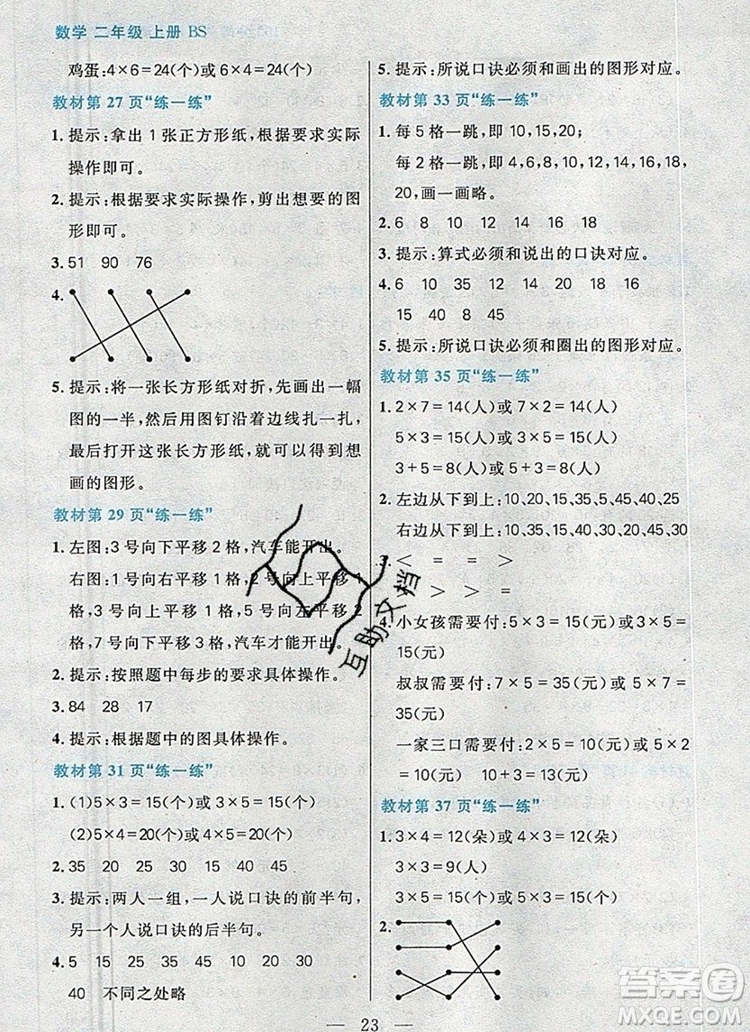 数学 二年级 上册 BS
鸡蛋:4×6=24(个)或 6×4=24(个)
教材第 27 页“练一练”
1. 提示:拿出 1 张正方形纸,根据要求实际
操作即可。
2. 提示:根据要求实际操作,剪出想要的图
形即可。
3. 51 90 76
4.
5. 提示:将一张长方形纸对折,先画出一幅
图的一半,然后用图钉沿着边线扎一扎,
最后打开这张长方形纸,就可以得到想
画的图形。
教材第 29 页“练一练”
1. 左图:3 号向下平移 2 格,汽车能开出。
右图:1 号向右平移 1 格,2 号向上平移 1
格,6 号向上平移 3 格,5 号向左平移 2
格,7 号向下平移 3 格,汽车才能开出。
2. 提示:按照题中每步的要求具体操作。
3. 84 28 17
4. 提示:根据题中的图具体操作。
教材第 31 页“练一练”
1. (1)5×3=15(个)或 3×5=15(个)
(2)5×4=20(个)或 4×5=20(个)
2. 35 25 45 15 30 20 40
3. 提示:两人一组,一人说口诀的前半句,
另一个人说口诀的后半句。
4. 5 15 25 35 45 10 20 30
40 不同之处略
5. 提示:所说口诀必须和画出的图形对应。
教材第 33 页“练一练”
1. 每 5 格一跳,即 10,15,20;
每 2 格一跳,即 4,6,8,10,12,14,16,18,
20,画一画略。
2. 6 8 10 12 14 16 18
3. 提示:算式必须和说出的口诀对应。
4. 6 10 35 12 14 20 18 16
15 40 8 45
5. 提示:所说口诀必须和圈出的图形对应。
教材第 35 页“练一练”
1. 2×7=14(人)或 7×2=14(人)
5×3=15(人)或 3×5=15(人)
3+5=8(人)或 5+3=8(人)
2. 左边从下到上:10,20,15,35,5,45,40,25
右边从下到上:10,35,15,40,20,45,30
3. < = = >
> > > =
4. 小女孩需要付:5×3=15(元)或 3×
5=15(元)
叔叔需要付:7×5=35(元)或 5×7=
35(元)
一家三口需要付:2×5=10(元)或 5×
2=10(元) 10+3=13(元)
教材第 37 页“练一练”
1. 3×4=12(朵)或 4×3=12(朵)
3×3=9(人)
3×5=15(个)或 5×3=15(个)
2.
互助文档
答案圈
MXQE.COM
23